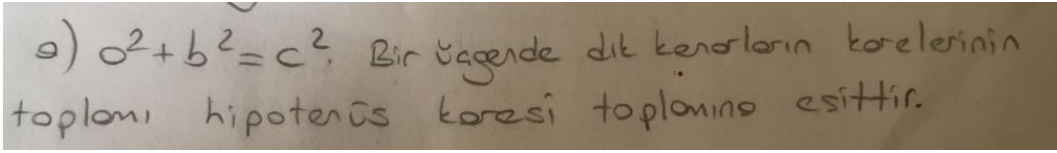 a) a² + b² = c². Bir üçgende dik kenarların karelerinin
toplamı hipotenüs karesi toplamına eşittir.